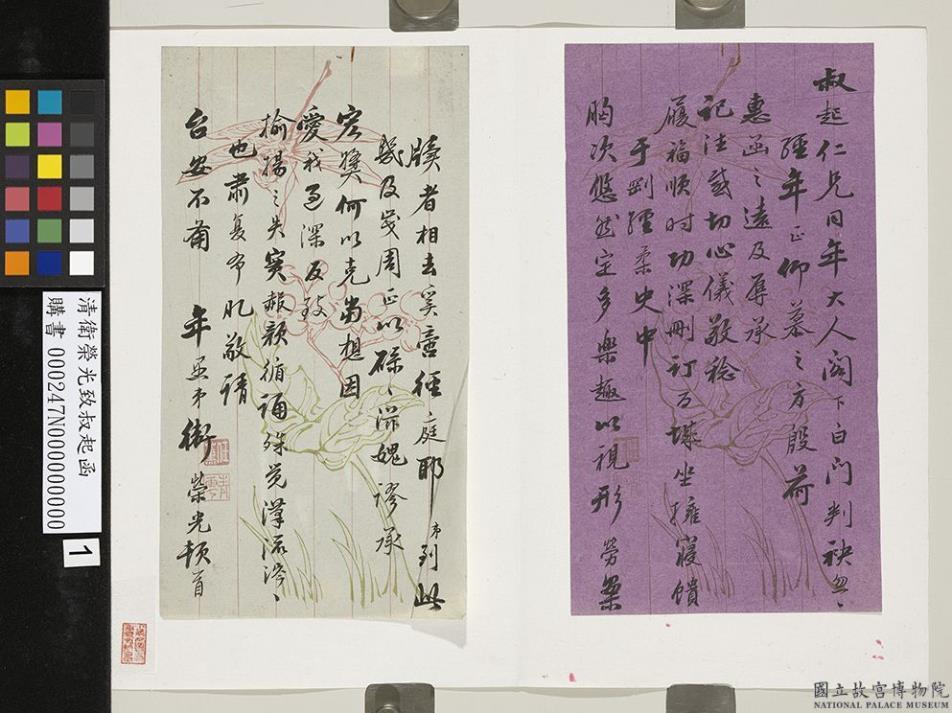 叔起仁兄同年大人閣下白門判袂忽〻
經年正仰慕之方殷荷
惠函之遠及辱承
記注感切心儀敬稔
履福順時功深刪訂百城坐擁寢饋
于剛經柔史中
胸次悠然定多樂趣以視形勞案
牘者相去奚啻徑庭耶弟到此
幾及歲周正以碌〻滋媿謬承
宏獎何以克當想因
愛我過深反致
揄揚之失實赧顏循誦殊覺
也肅復布肊敬請
台安不備 年愚弟衛榮光頓首
清衛榮光致叔起函
購書 000247N000000000
1
國立故宮博物院
NATIONAL PALACE MUSEUM